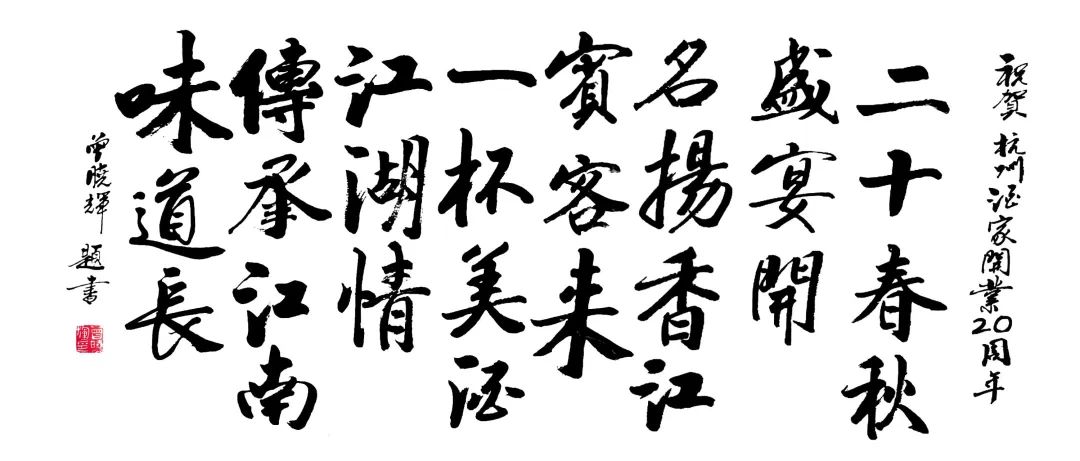 祝賀杭州酒家開業20周年
二十春秋
盛宴開
名揚香江
賓客来
一杯美酒
江湖情
傳承江南
味道長
曾曉輝題書